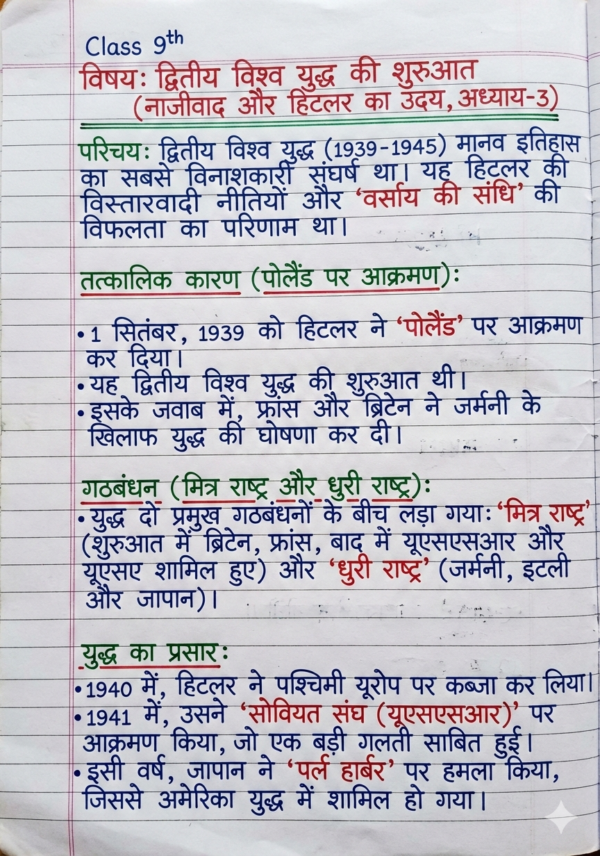 Class 9th
विषय: द्वितीय विश्व युद्ध की शुरुआत
(नाजीवाद और हिटलर का उदय, अध्याय-3)
परिचय: द्वितीय विश्व युद्ध (1939-1945) मानव इतिहास
का सबसे विनाशकारी संघर्ष था। यह हिटलर की
विस्तारवादी नीतियों और 'वर्साय की संधि' की
विफलता का परिणाम था।
तत्कालिक कारण (पोलैंड पर आक्रमण):
• 1 सितंबर, 1939 को हिटलर ने 'पोलैंड' पर आक्रमण
कर दिया।
• यह द्वितीय विश्व युद्ध की शुरुआत थी।
• इसके जवाब में, फ्रांस और ब्रिटेन ने जर्मनी के
खिलाफ युद्ध की घोषणा कर दी।
गठबंधन (मित्र राष्ट्र और धुरी राष्ट्र):
• युद्ध दो प्रमुख गठबंधनों के बीच लड़ा गया: 'मित्र राष्ट्र'
(शुरुआत में ब्रिटेन, फ्रांस, बाद में यूएसएसआर और
यूएसए शामिल हुए) और 'धुरी राष्ट्र' (जर्मनी, इटली
और जापान)।
युद्ध का प्रसार:
• 1940 में, हिटलर ने पश्चिमी यूरोप पर कब्जा कर लिया।
• 1941 में, उसने 'सोवियत संघ (यूएसएसआर)' पर
आक्रमण किया, जो एक बड़ी गलती साबित हुई।
• इसी वर्ष, जापान ने 'पर्ल हार्बर' पर हमला किया,
जिससे अमेरिका युद्ध में शामिल हो गया।